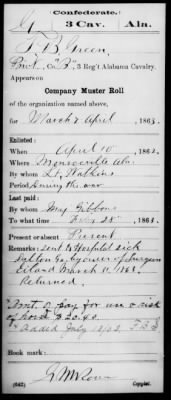 Confederate.
G 3 Cav. Ala.
T. B. Green,
Pvt., Co. "B", 3 Reg't Alabama Cavalry.
Appears on
Company Muster Roll
of the organization named above,
for March & April, 1863.
Enlisted:
When April 10, 1862.
Where Monroeville Ala.
By whom Lt. Watkins
Period During the war
Last paid:
By whom Maj Gibbons
To what time Feby 28, 1863.
Present or absent Present
Remarks: Sent to Hospital sick
Dalton Ga. by order of Surgeon
March 11, 1863.
Returned.
Amt. of pay for use & risk
of horse $20.40.
(642) Copyist.